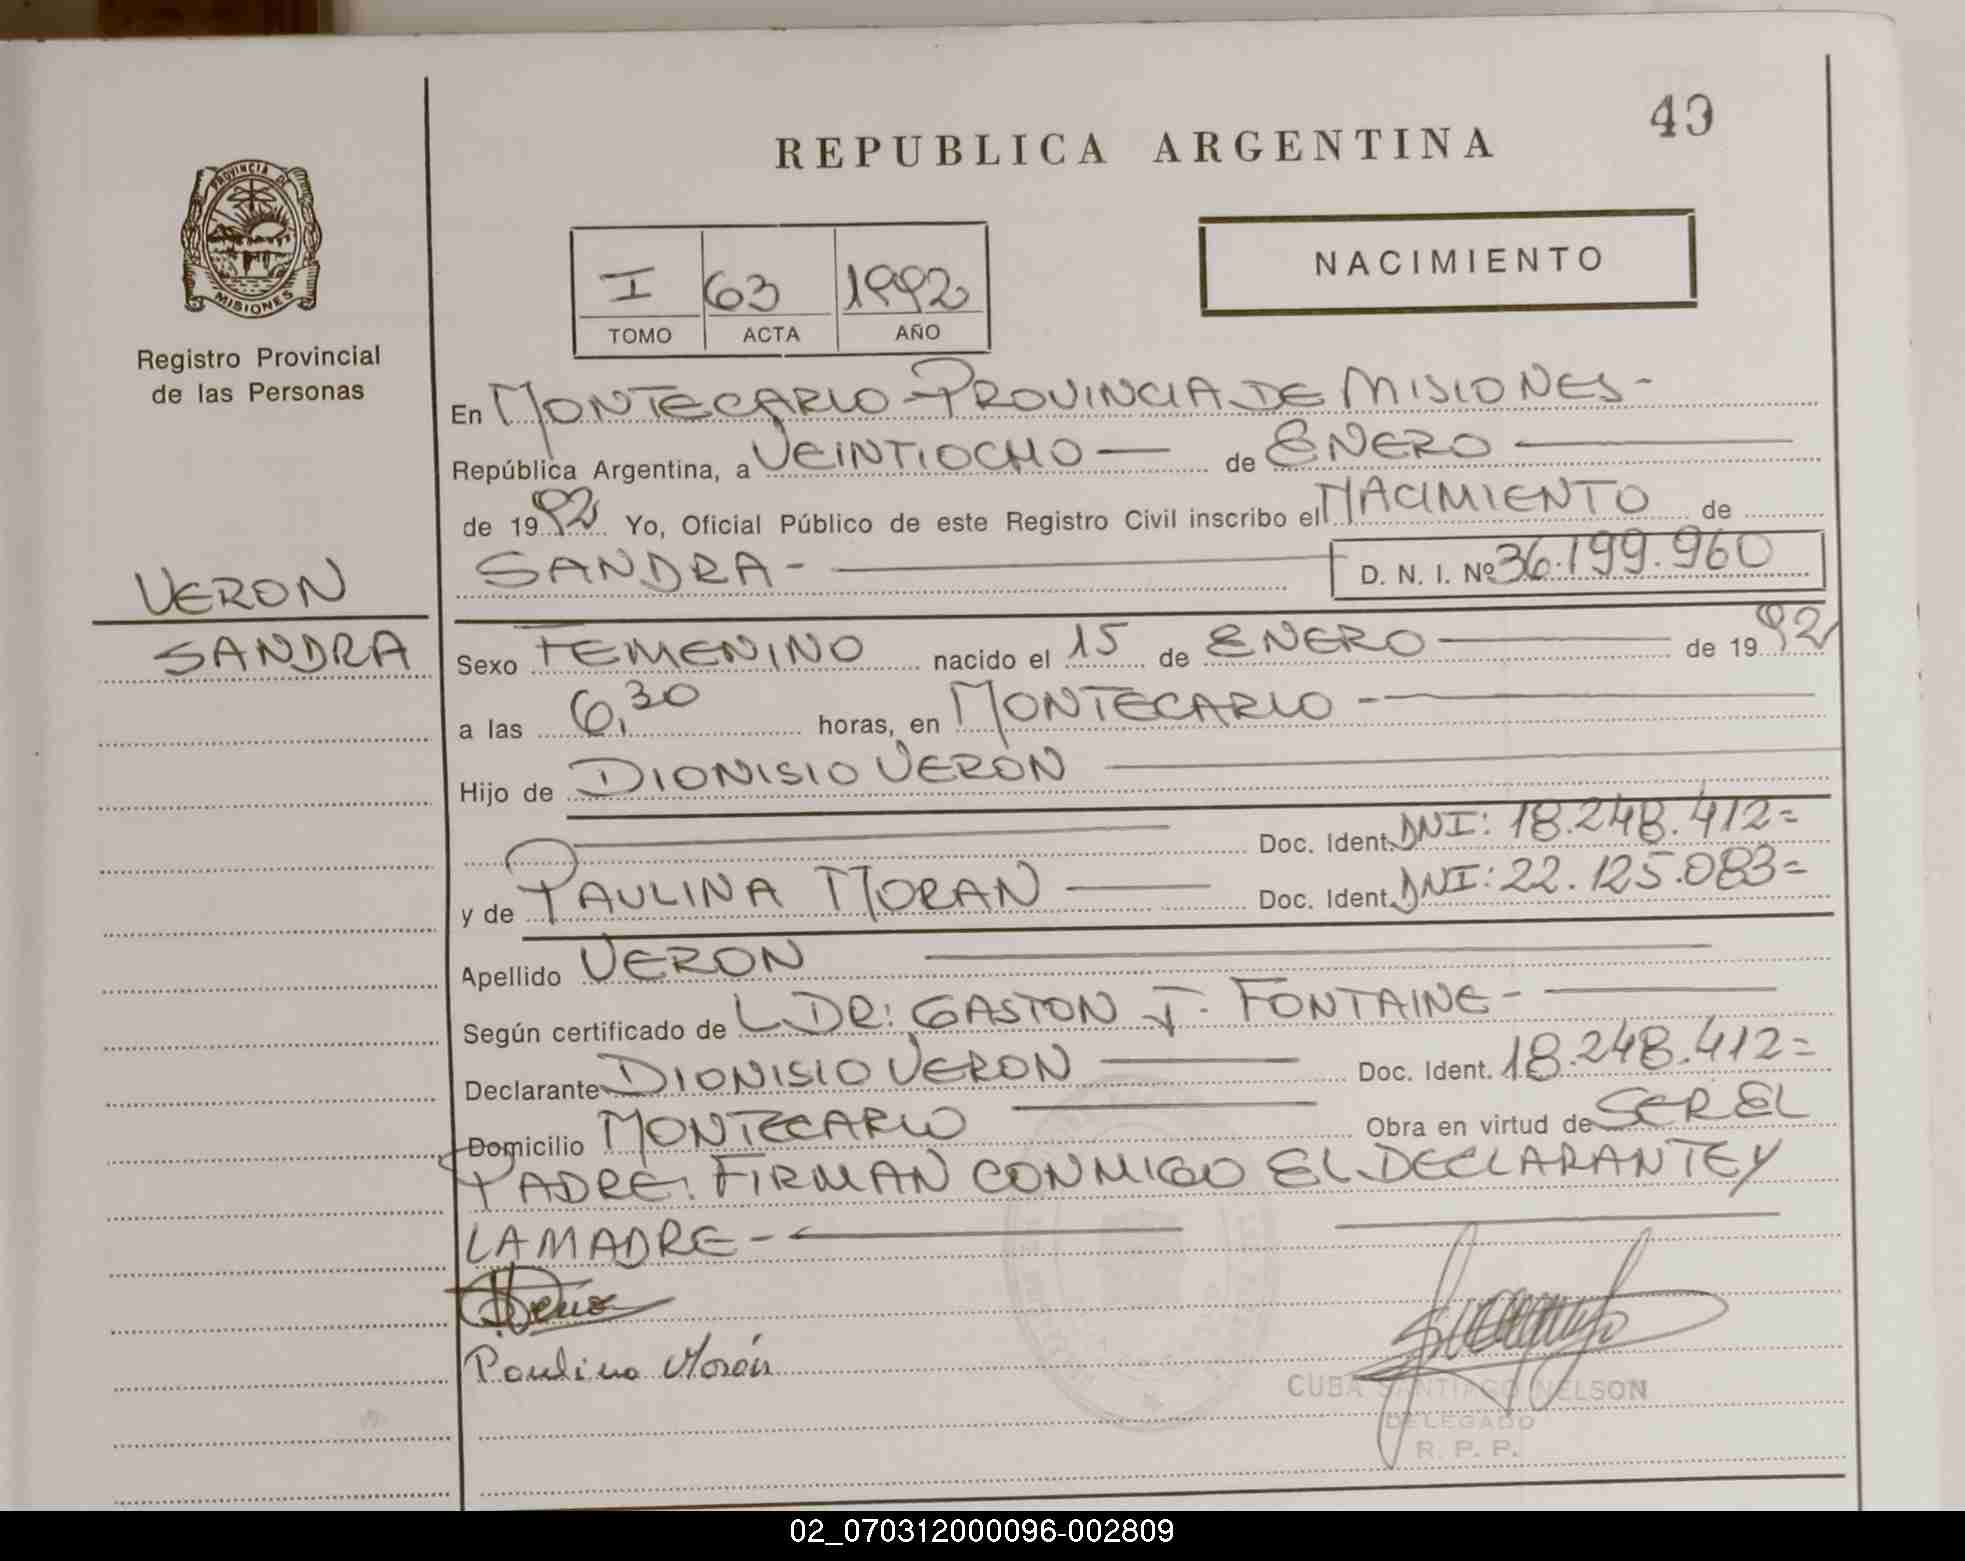 43
REPUBLICA ARGENTINA
PROVINCIA DE
MISIONES
Registro Provincial
de las Personas
I 63 1992
TOMO ACTA AÑO
NACIMIENTO
En MONTECARLO - PROVINCIA DE MISIONES -
República Argentina, a VEINTIOCHO — de ENERO —
de 1992 Yo, Oficial Público de este Registro Civil inscribo el NACIMIENTO de
SANDRA - — D. N. I. Nº 36.199.960
VERON
SANDRA
Sexo FEMENINO nacido el 15 de ENERO — de 1992
a las 6,30 horas, en MONTECARLO - —
Hijo de DIONISIO VERON —
— Doc. Ident. DNI: 18.248.412=
y de PAULINA MORAN — Doc. Ident. DNI: 22.125.083=
Apellido VERON —
Según certificado de L. DR: GASTON J. FONTAINE - —
Declarante DIONISIO VERON — Doc. Ident. 18.248.412=
Domicilio MONTECARLO — Obra en virtud de SER EL
PADRE: FIRMAN CONMIGO EL DECLARANTE Y
LA MADRE - —
Paulina Morán
CUBA SANTIAGO NELSON
DELEGADO
R. P. P.
02_070312000096-002809